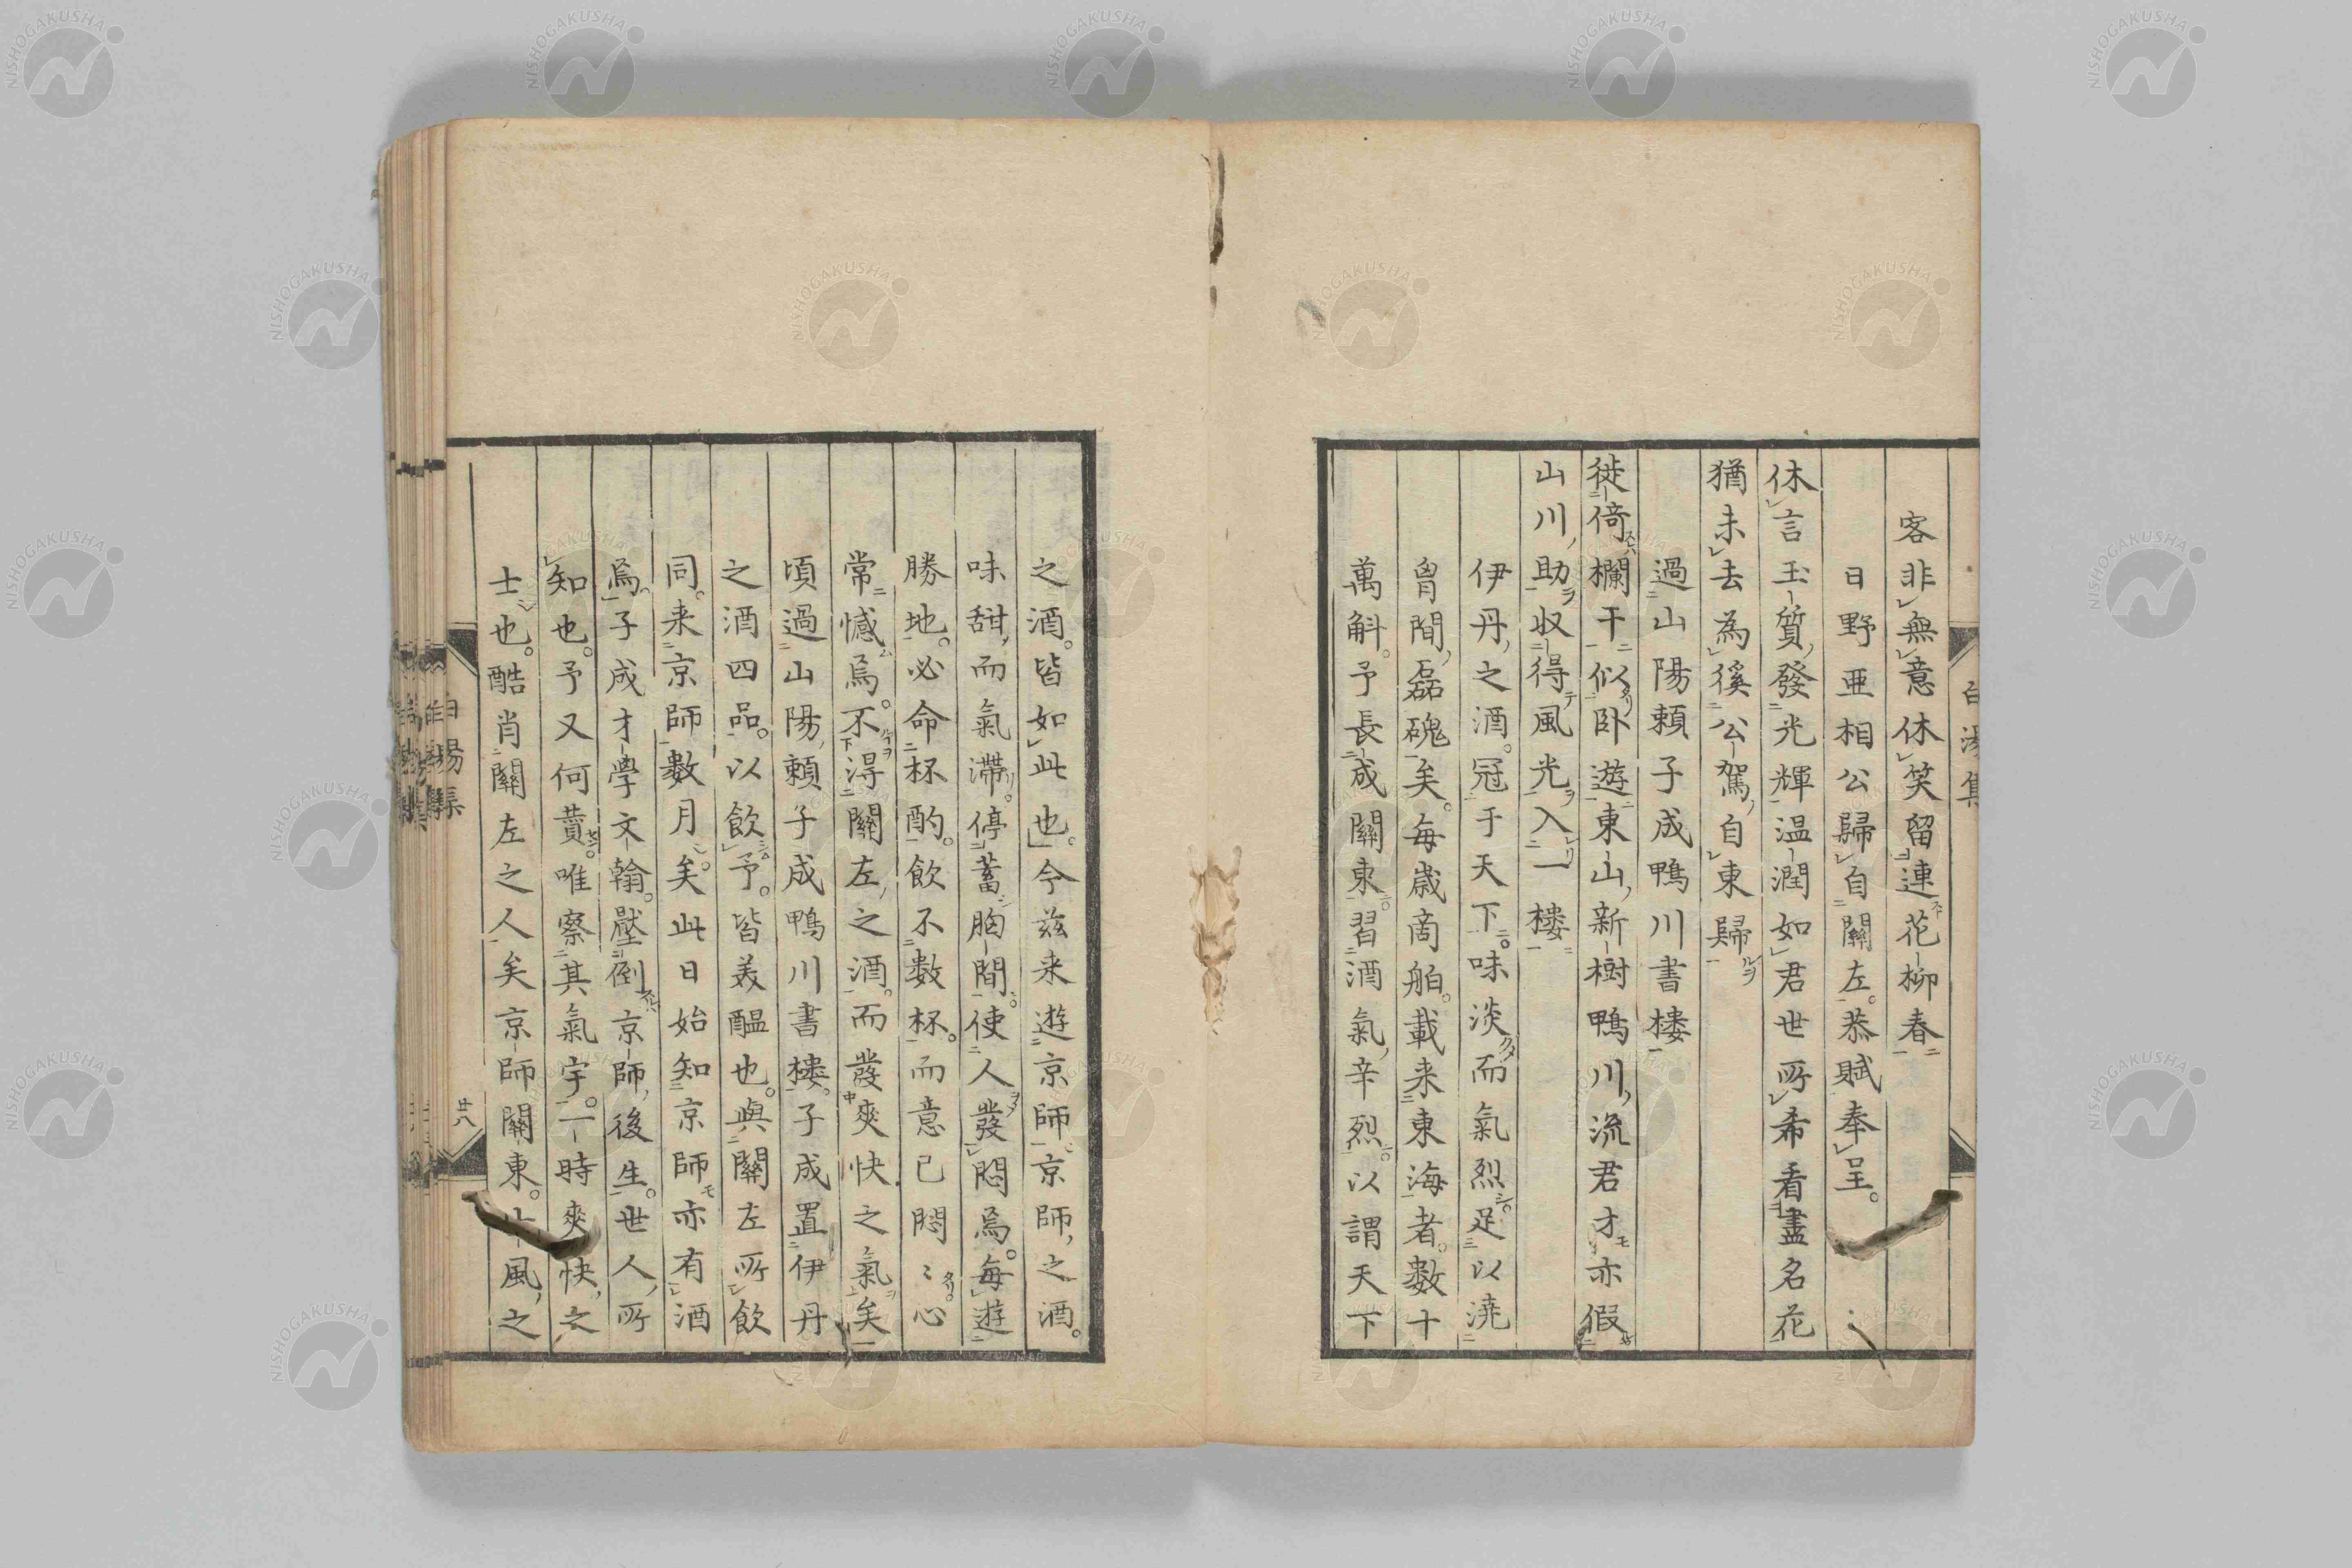 客非無意休笑留連花柳春
日野亜相公歸自關左。恭賦奉呈。
休言玉質發光輝温潤如君世所希看盡名花
猶未去為徯公駕自東歸
過山陽賴子成鴨川書楼
徙倚欄干似卧遊東山新樹鴨川流君才亦假
山川助收得風光入一楼
伊丹之酒。冠于天下。味淡而氣烈。足以澆
胷間磊磈矣。每歳商舶。載来東海者。數十
萬斛。予長成關東。習酒氣辛烈。以謂天下
之酒。皆如此也。今茲来遊京師京師之酒。
味甜而氣滯。停蓄胸間。使人發悶焉。每遊
勝地。必命杯酌。飲不數杯。而意已悶〻心
常憾焉。不得關左之酒。而發爽快之氣矣
頃過山陽賴子成鴨川書楼。子成置伊丹
之酒四品。以飲予。皆美醞也。與關左所飲
同。来京師數月矣。此日始知京師亦有酒
焉。子成才學文翰。壓倒京師後生。世人所
知也。予又何贅。唯察其氣宇。一時爽快之
士也。酷肖關左之人矣京師關東。士風之
白湯集
廿八
NISHOGAKUSHA